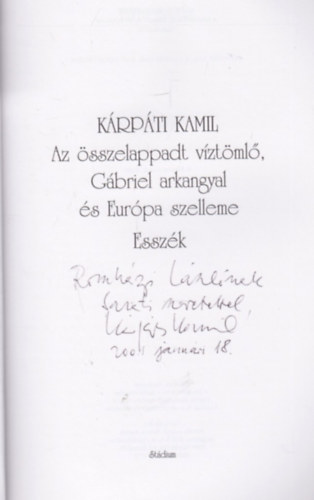 KÁRPÁTI KAMIL
Az összelappadt víztömlő,
Gábriel arkangyal
és Európa szelleme
Esszék
Romházi Lászlónak
baráti szeretettel,
Kárpáti Kamil
2004 január 18.
Stádium